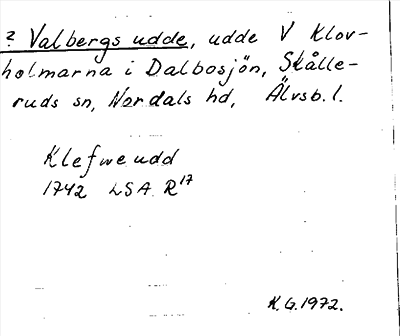 ? Valbergs udde, udde V Klov-
holmarna i Dalbosjön, Skålle-
ruds sn, Nordals hd, Älvsb. l.
Klefwe udd
1742 LSA R17
K.G. 1972.